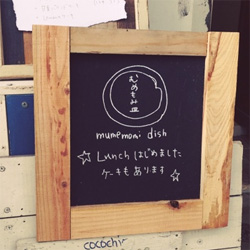 むめもみ皿
mumemomi dish
☆ Lunch はじめました
ケーキも あります ☆
cocochi